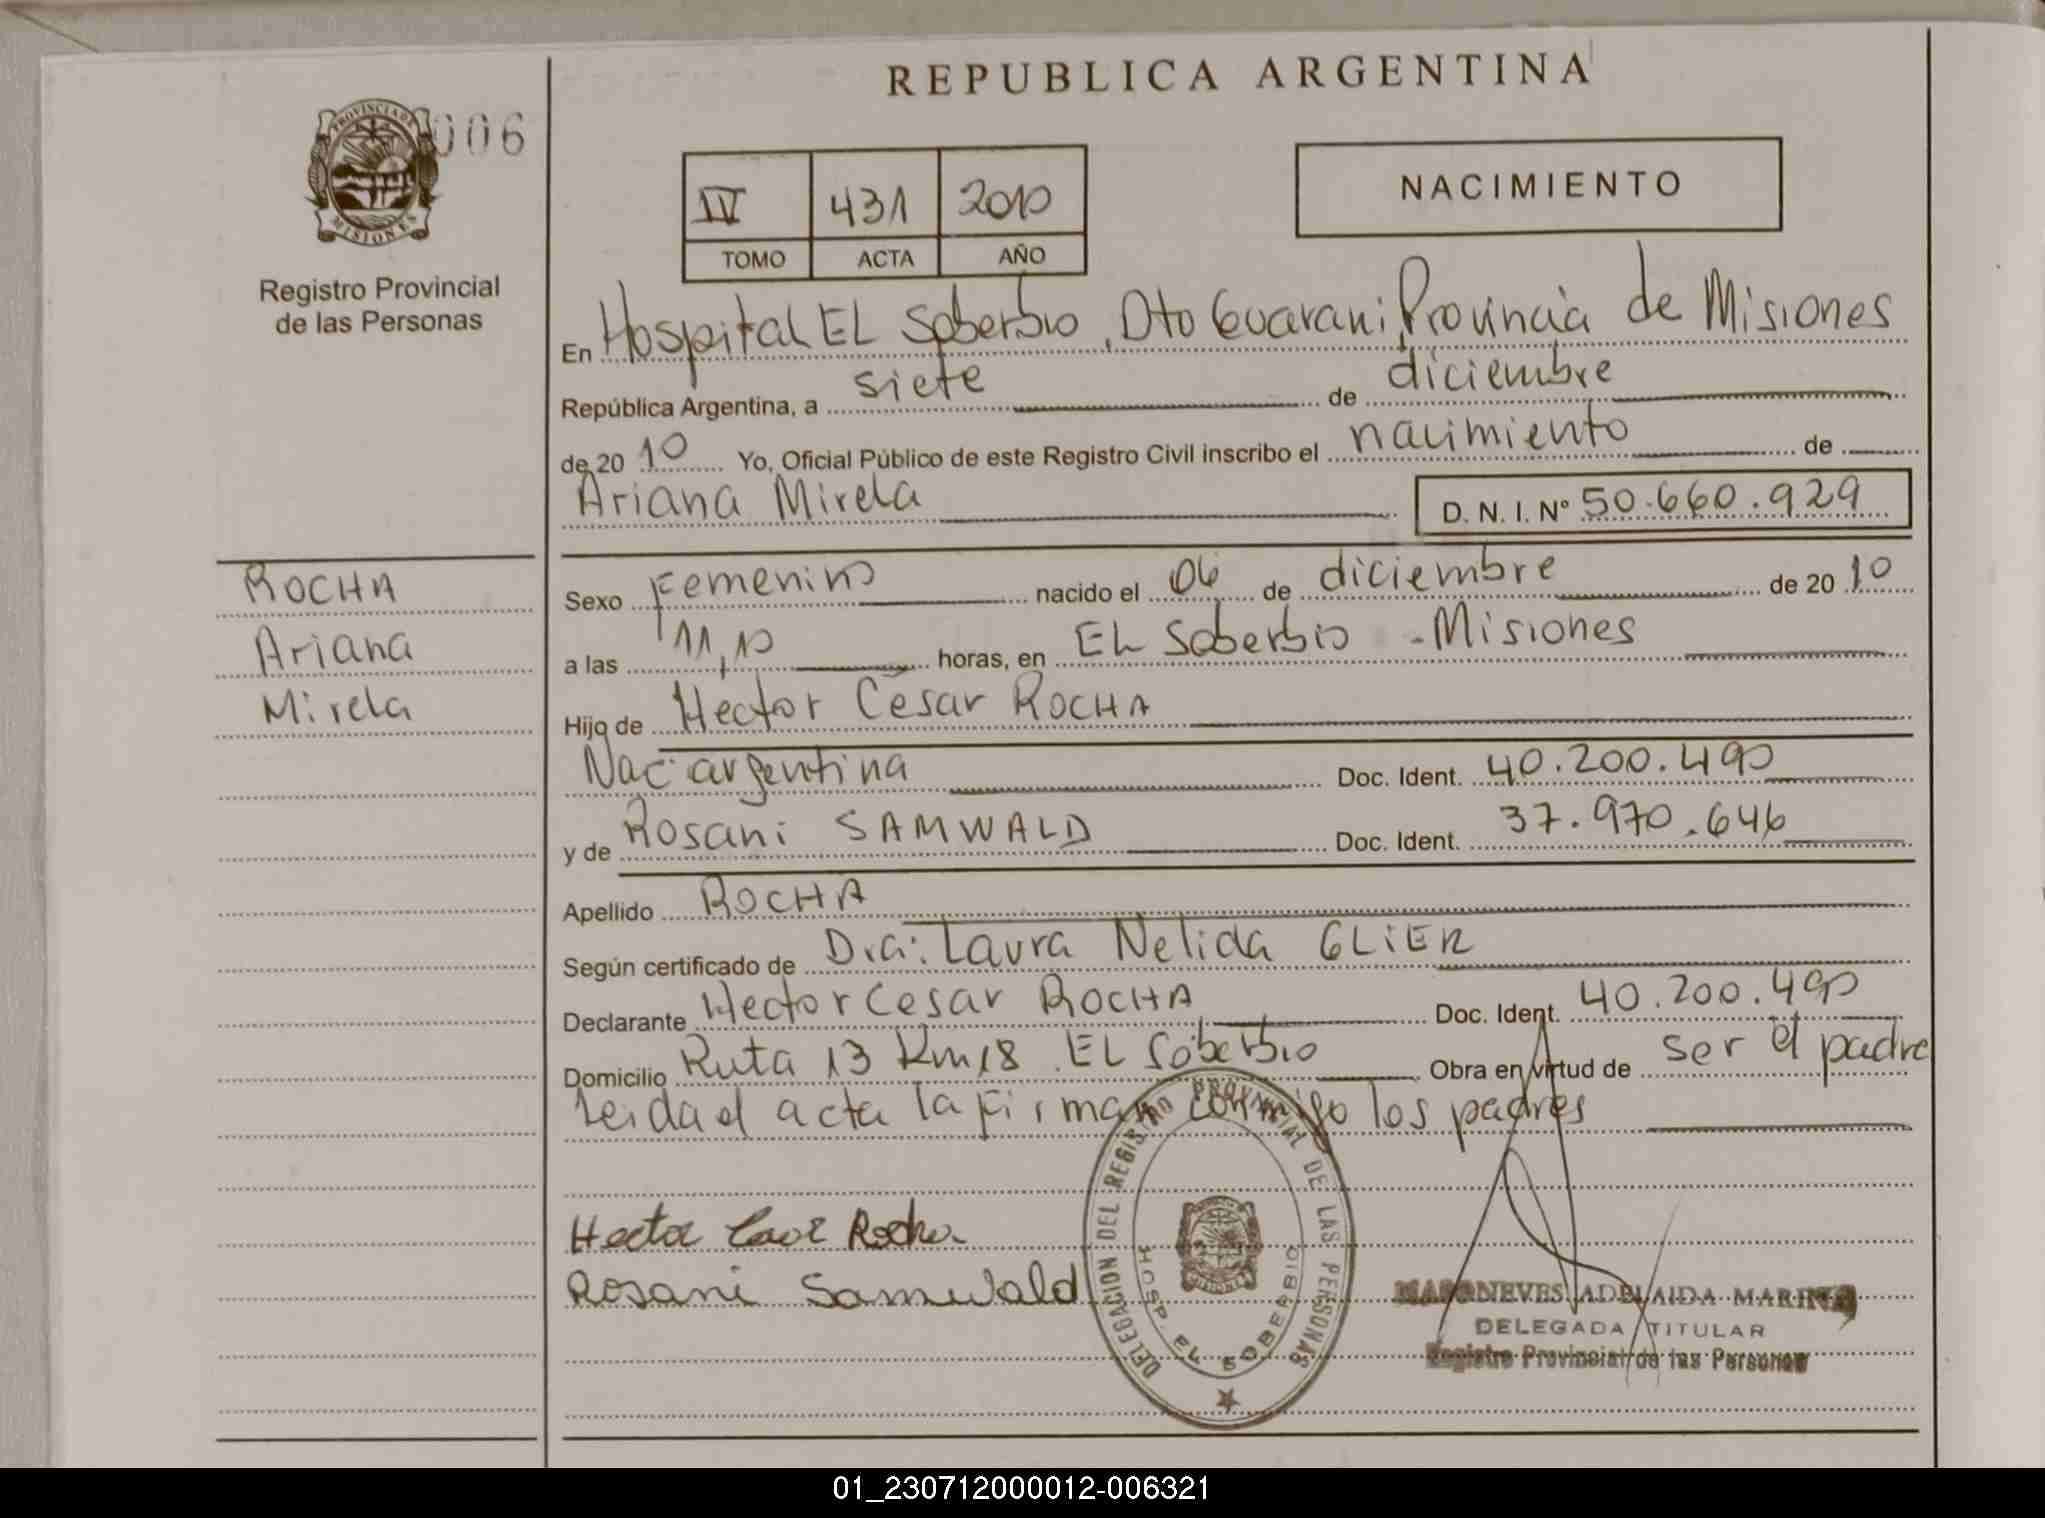 REPUBLICA ARGENTINA
PROVINCIA DE MISIONES
006
Registro Provincial
de las Personas
IV 431 2010
TOMO ACTA AÑO
NACIMIENTO
En Hospital EL Soberbio, Dto Guarani, Provincia de Misiones
República Argentina, a siete de diciembre
de 20 10 Yo, Oficial Público de este Registro Civil inscribo el nacimiento de
Ariana Mirela D. N. I. Nº 50.660.929
ROCHA
Ariana
Mirela
Sexo Femenino nacido el 06 de diciembre de 20 10
a las 11,10 horas, en EL Soberbio - Misiones
Hijo de Hector Cesar ROCHA
Nac: argentina Doc. Ident. 40.200.490
y de Rosani SAMWALD Doc. Ident. 37.970.646
Apellido ROCHA
Según certificado de Dra: Laura Nelida GLIER
Declarante Hector Cesar ROCHA Doc. Ident. 40.200.490
Domicilio Ruta 13 Km 18 EL Soberbio Obra en virtud de ser el padre
Leida el acta la firman conmigo los padres
Hector Rocha
Rosani Samwald
DELEGACION DEL REGISTRO PROVINCIAL DE LAS PERSONAS
HOSP. EL SOBERBIO
ADELAIDA MARINA
DELEGADA TITULAR
Registro Provincial de las Personas
01_230712000012-006321